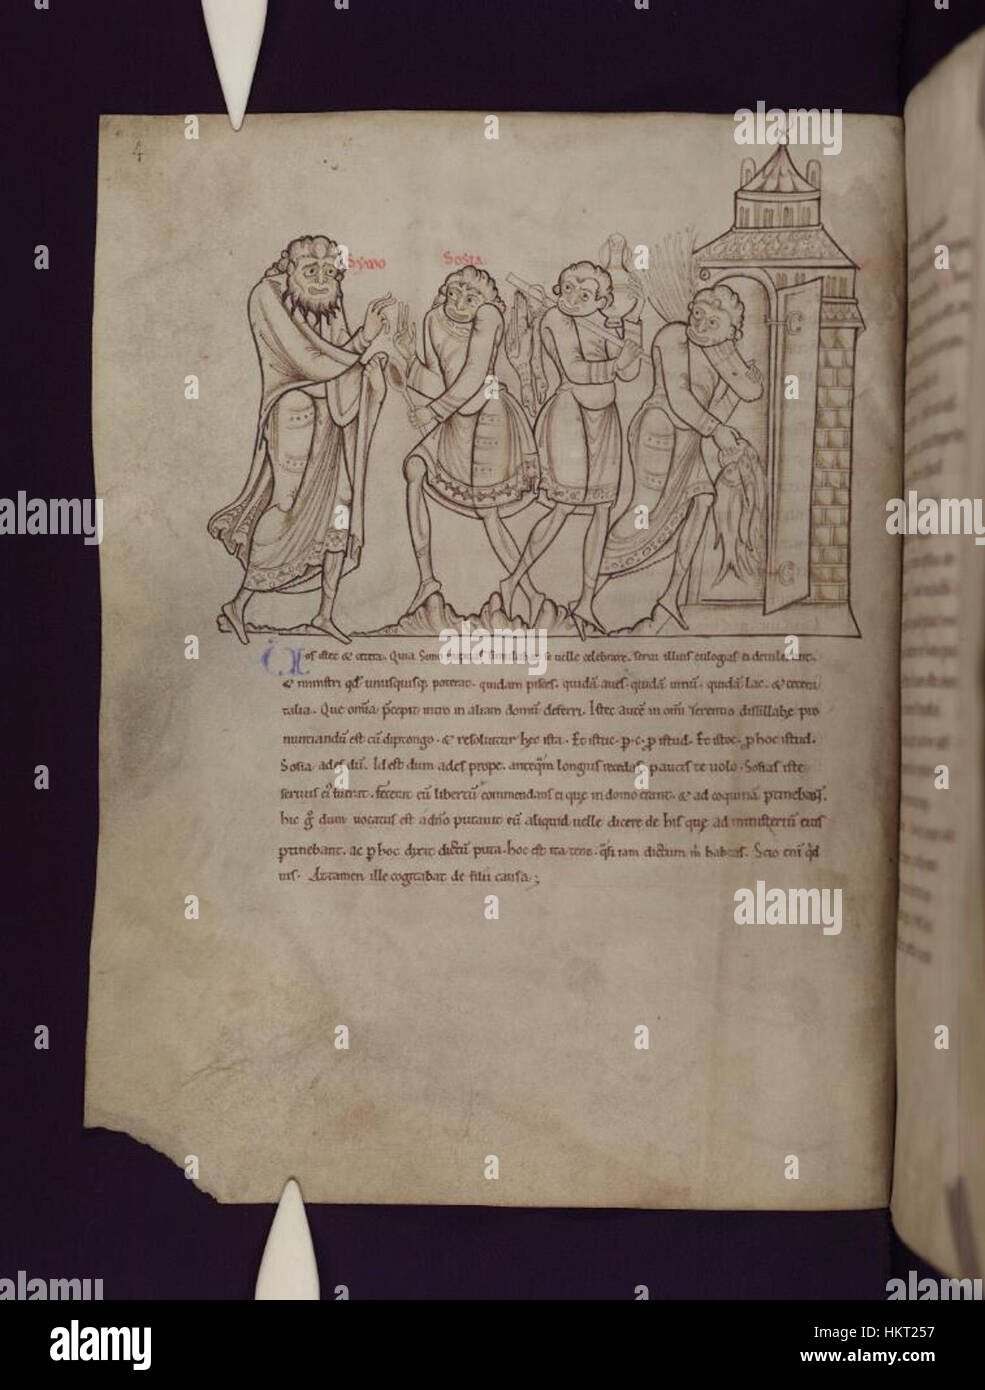 4
Symo
Sosia
Vos istec & cetera. Quia Simo nuptias se uelle celebrare. serui illius eulogias ei detulerunt.
& ministri qd' unusquisq; poterat. quidam pisces. quidā aues. quidā uinū. quidā lac. & cetera
talia. Que omīa p̄cepit intro in aliam domū deferri. Istec autē in omī terentio dissillabe pro
nuntiandū est cū diptongo. & resoluitur hec ista. Et istuc. p. c. p istud. Et istoc. p hoc istud.
Sosia ades dū. Id est dum ades prope. anteq̄m longius recedas paucis te uolo. Sosias iste
seruus ei' fuerat. fecerat eū libertū commendans ei que in domo erant. & ad coquinā ptinebant.
hic g° dum uocatus est a dn̄o putauit eū aliquid uelle dicere de his que ad ministeriū eius
ptinebant. ac p hoc dixit dictū puta. hoc est ita tene. qsi iam dictum m̄ habeas. Scio enī qd
uis. Attamen ille cogitabat de filii causa;
alamy
a
alamy
Image ID: HKT257
www.alamy.com